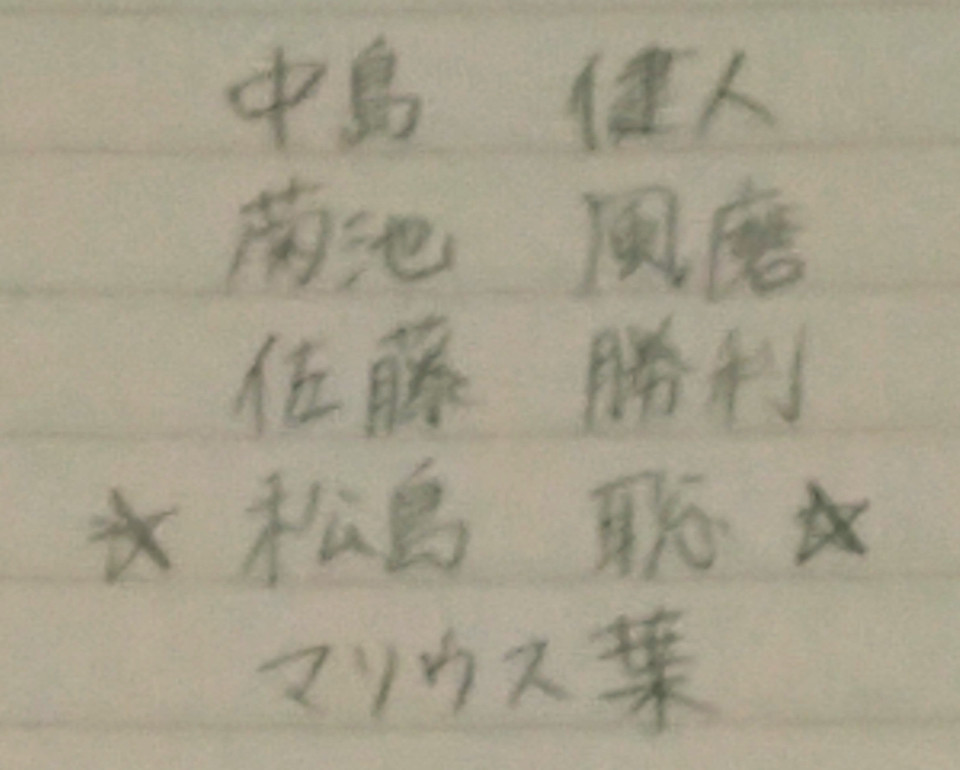 中島 健人
菊池 風磨
佐藤 勝利
☆ 松島 聡 ☆
マリウス葉